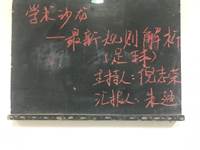 学术沙龙
——最新规则解析
(足球)
主持人:倪志荣
汇报人:朱迪